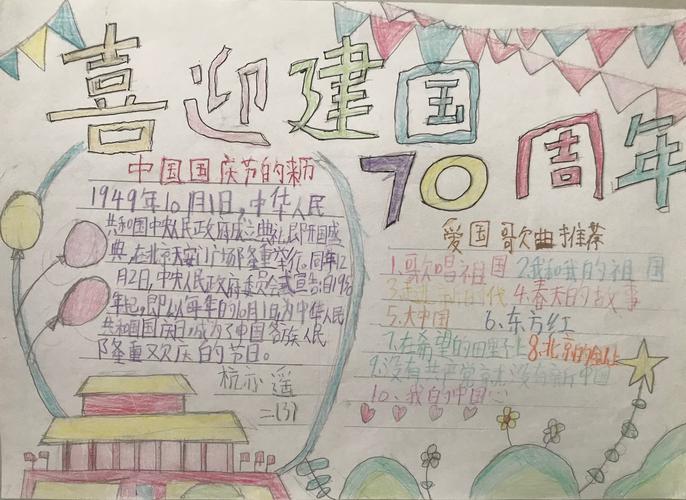 喜迎建国70周年
中国国庆节的来历
1949年10月1日,中华人民
共和国中央人民政府成立典礼,即开国盛
典,在北京天安门广场隆重举行。同年12
月2日,中央人民政府委员会宣告:自1950
年起,即以每年的10月1日为中华人民
共和国国庆日,成为了中国各族人民
隆重欢庆的节日。
杭亦遥
二(3)
爱国歌曲推荐
1.歌唱祖国 2我和我的祖国
3走进新的时代 4.春天的故事
5.大中国 6、东方红
7.在希望的田野上 8.北京的金山上
9.没有共产党就没有新中国
10、我的中国心